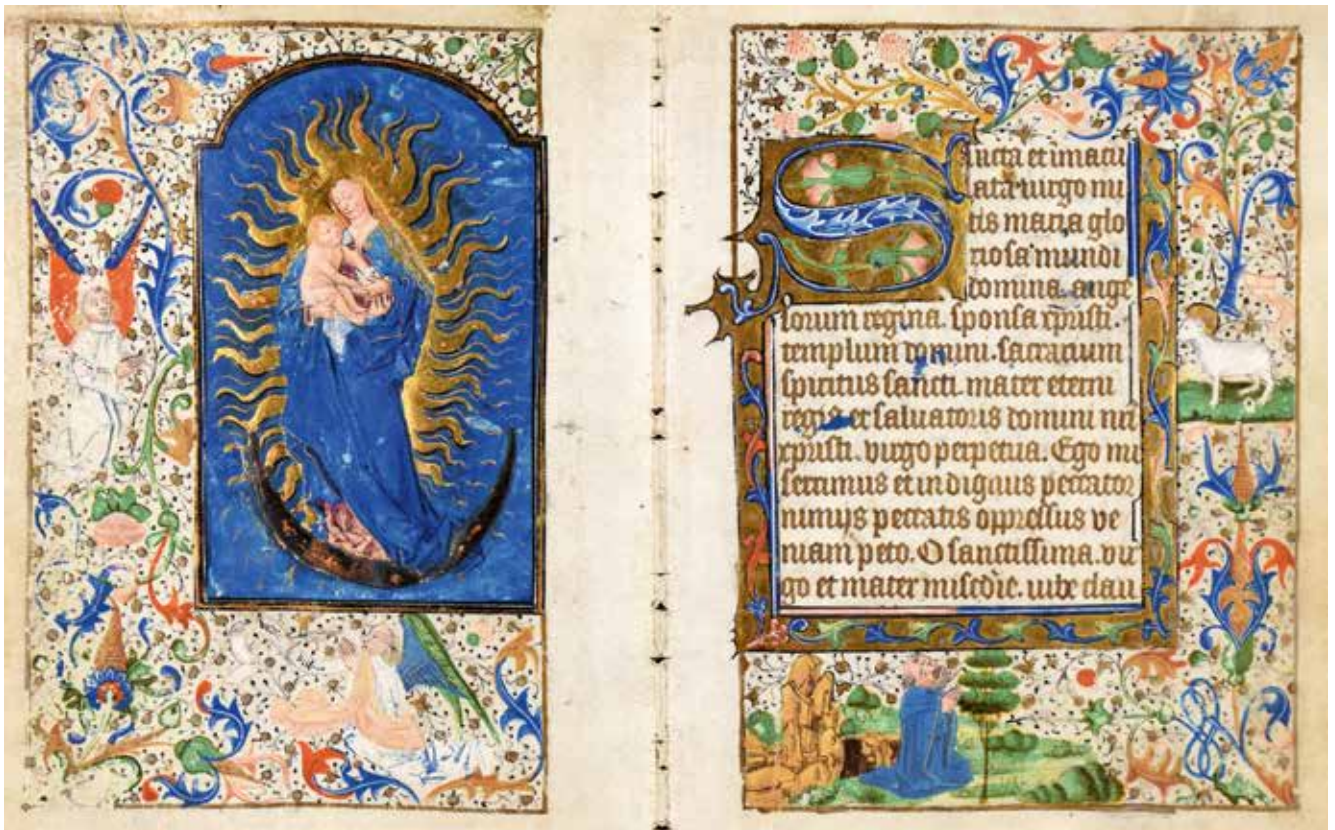 Sancta et imacu
lata virgo mi
tis maria glo
riosa mundi
domina. ange
lorum regina. sponsa cpristi.
templum domini. sacrarium
spiritus sancti. mater eterni
regis et saluatoris domini nri
cpristi. virgo perpetua. Ego mi
serrimus et indignus peccator
nimijs peccatis oppressus ve
niam peto. O sanctissima. vir
go et mater misedie. urbe dau